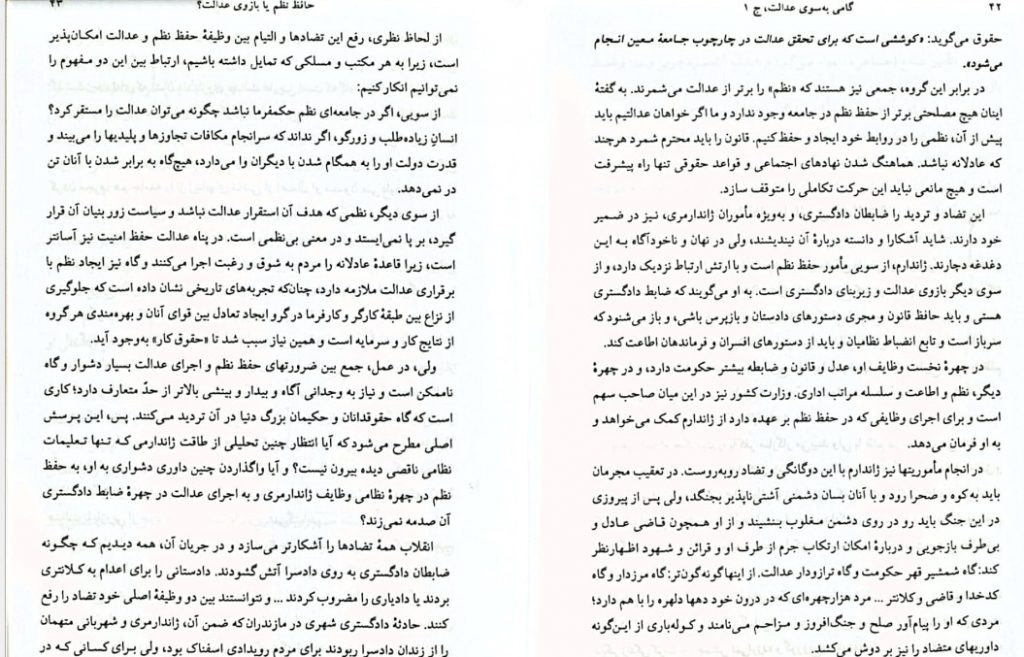 ۴۲
گامی به‌سوی عدالت، ج ۱
حقوق می‌گوید: «کوششی است که برای تحقق عدالت در چارچوب جامعهٔ معین انجام
می‌شود».
در برابر این گروه، جمعی نیز هستند که «نظم» را برتر از عدالت می‌شمرند. به گفتهٔ
اینان هیچ مصلحتی برتر از حفظ نظم در جامعه وجود ندارد و ما اگر خواهان عدالتیم باید
پیش از آن، نظمی را در روابط خود ایجاد و حفظ کنیم. قانون را باید محترم شمرد هرچند
که عادلانه نباشد. هماهنگ شدن نهادهای اجتماعی و قواعد حقوقی تنها راه پیشرفت
است و هیچ مانعی نباید این حرکت تکاملی را متوقف سازد.
این تضاد و تردید را ضابطان دادگستری، و به‌ویژه مأموران ژاندارمری، نیز در ضمیر
خود دارند. شاید آشکارا و دانسته دربارهٔ آن نیندیشند، ولی در نهان و ناخودآگاه به این
دغدغه دچارند. ژاندارم، از سویی مأمور حفظ نظم است و با ارتش ارتباط نزدیک دارد، و از
سوی دیگر بازوی عدالت و زیربنای دادگستری است. به او می‌گویند که ضابط دادگستری
هستی و باید حافظ قانون و مجری دستورهای دادستان و بازپرس باشی، و باز می‌شنود که
سرباز است و تابع انضباط نظامیان و باید از دستورهای افسران و فرماندهان اطاعت کند.
در چهرهٔ نخست وظایف او، عدل و قانون و ضابطه بیشتر حکومت دارد، و در چهرهٔ
دیگر، نظم و اطاعت و سلسله مراتب اداری. وزارت کشور نیز در این میان صاحب سهم
است و برای اجرای وظایفی که در حفظ نظم بر عهده دارد از ژاندارم کمک می‌خواهد و
به او فرمان می‌دهد.
در انجام مأموریتها نیز ژاندارم با این دوگانگی و تضاد روبه‌روست. در تعقیب مجرمان
باید به کوه و صحرا رود و با آنان بسان دشمنی آشتی‌ناپذیر بجنگد، ولی پس از پیروزی
در این جنگ باید رو در روی دشمن مغلوب بنشیند و از او همچون قاضی عادل و
بی‌طرف بازجویی و دربارهٔ امکان ارتکاب جرم از طرف او و قرائن و شهود اظهارنظر
کند: گاه شمشیر قهر حکومت و گاه ترازودار عدالت. از اینها گونه‌گون‌تر: گاه مرزدار و گاه
کدخدا و قاضی و کلانتر ... مرد هزارچهره‌ای که در درون خود دهها دلهره را با هم دارد؛
مردی که او را پیام‌آور صلح و جنگ‌افروز و مزاحم می‌نامند و کوله‌باری از این‌گونه
داوریهای متضاد را نیز بر دوش می‌کشد.
حافظ نظم یا بازوی عدالت؟
۴۳
از لحاظ نظری، رفع این تضادها و التیام بین وظیفهٔ حفظ نظم و عدالت امکان‌پذیر
است، زیرا به هر مکتب و مسلکی که تمایل داشته باشیم، ارتباط بین این دو مفهوم را
نمی‌توانیم انکار کنیم:
از سویی، اگر در جامعه‌ای نظم حکمفرما نباشد چگونه می‌توان عدالت را مستقر کرد؟
انسان زیاده‌طلب و زورگو، اگر نداند که سرانجام مکافات تجاوزها و پلیدیها را می‌بیند و
قدرت دولت او را به همگام شدن با دیگران وا می‌دارد، هیچ‌گاه به برابر شدن با آنان تن
در نمی‌دهد.
از سوی دیگر، نظمی که هدف آن استقرار عدالت نباشد و سیاست زور بنیان آن قرار
گیرد، بر پا نمی‌ایستد و در معنی بی‌نظمی است. در پناه عدالت حفظ امنیت نیز آسانتر
است، زیرا قاعدهٔ عادلانه را مردم به شوق و رغبت اجرا می‌کنند و گاه نیز ایجاد نظم با
برقراری عدالت ملازمه دارد، چنان‌که تجربه‌های تاریخی نشان داده است که جلوگیری
از نزاع بین طبقهٔ کارگر و کارفرما در گرو ایجاد تعادل بین قوای آنان و بهره‌مندی هر گروه
از نتایج کار و سرمایه است و همین نیاز سبب شد تا «حقوق کار» به‌وجود آید.
ولی، در عمل، جمع بین ضرورتهای حفظ نظم و اجرای عدالت بسیار دشوار و گاه
ناممکن است و نیاز به وجدانی آگاه و بیدار و بینشی بالاتر از حدّ متعارف دارد؛ کاری
است که گاه حقوقدانان و حکیمان بزرگ دنیا در آن تردید می‌کنند. پس، این پرسش
اصلی مطرح می‌شود که آیا انتظار چنین تحلیلی از طاقت ژاندارمی که تنها تعلیمات
نظامی ناقصی دیده بیرون نیست؟ و آیا واگذاردن چنین داوری دشواری به او، به حفظ
نظم در چهرهٔ نظامی وظایف ژاندارمری و به اجرای عدالت در چهرهٔ ضابط دادگستری
آن صدمه نمی‌زند؟
انقلاب همهٔ تضادها را آشکارتر می‌سازد و در جریان آن، همه دیدیم که چگونه
ضابطان دادگستری به روی دادسرا آتش گشودند. دادستانی را برای اعدام به کلانتری
بردند یا دادیاری را مضروب کردند ... و نتوانستند بین دو وظیفهٔ اصلی خود تضاد را رفع
کنند. حادثهٔ دادگستری شهری در مازندران که ضمن آن، ژاندارمری و شهربانی متهمان
را از زندان دادسرا ربودند برای مردم رویدادی اسفناک بود، ولی برای کسانی که در